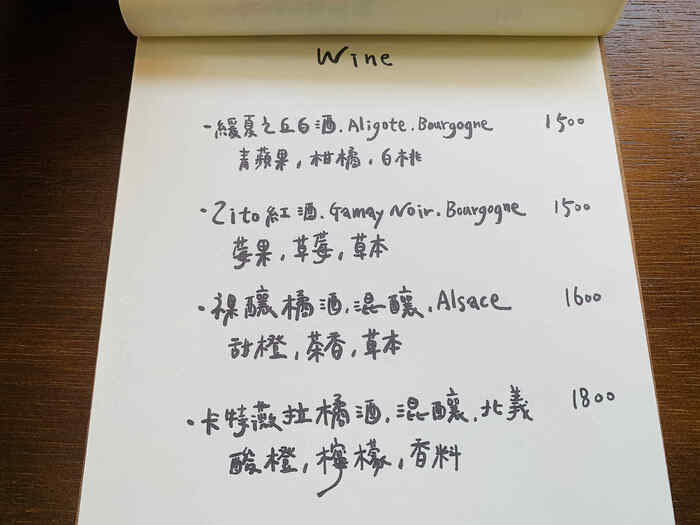 Wine
·緩夏之丘白酒.Aligote.Bourgogne 1500
青蘋果,柑橘,白桃
·Zito紅酒.Gamay Noir.Bourgogne 1500
莓果,草莓,草本
·裸釀橘酒,混釀,Alsace 1600
甜橙,茶香,草本
·卡特薇拉橘酒,混釀,北義 1800
酸橙,檸檬,香料